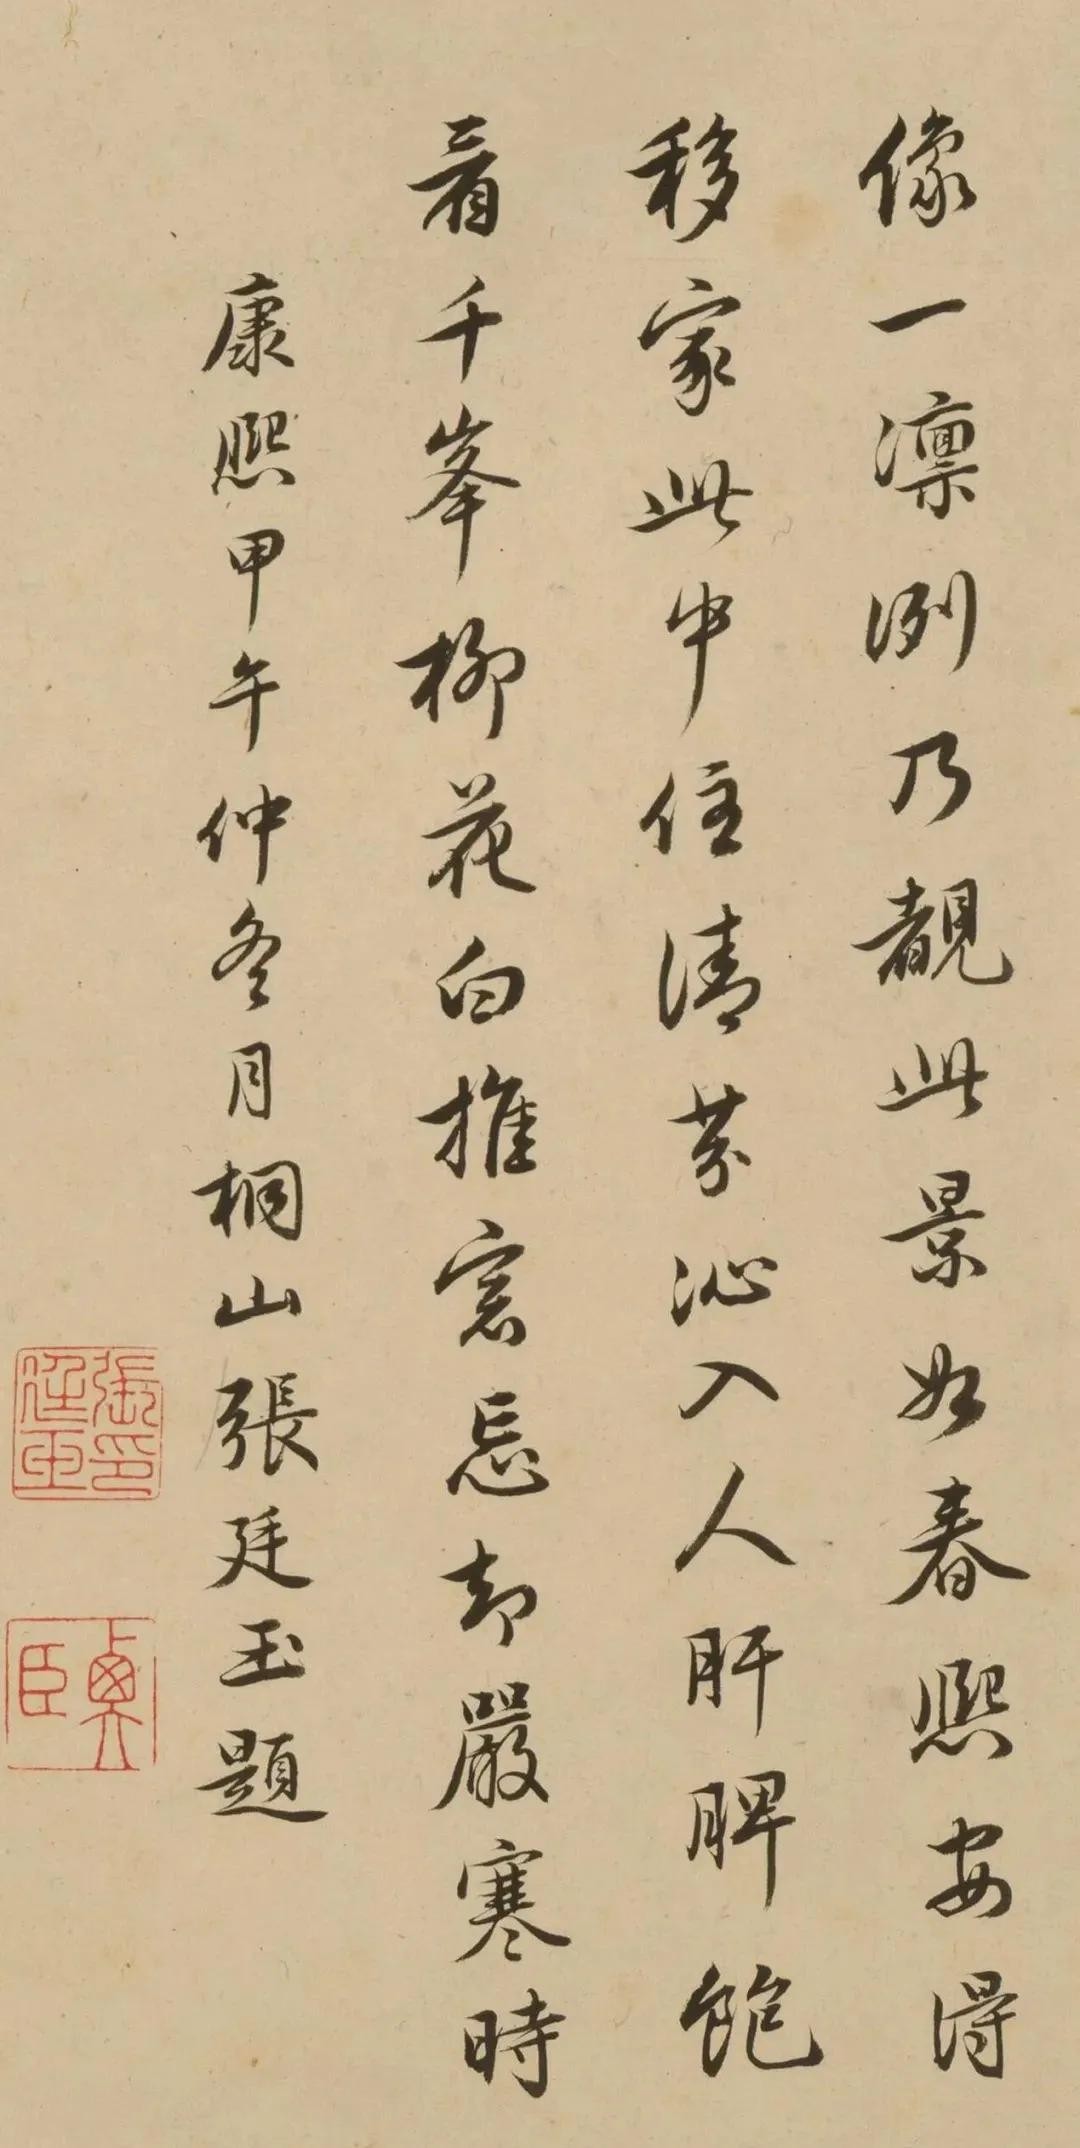 像一凛冽乃覩此景如春熙安得
移家此中住清芬沁入人肝脾飽
看千峯柳花白推窓忘却嚴寒時
康熙甲午仲冬月桐山張廷玉題
張廷玉印
衡臣